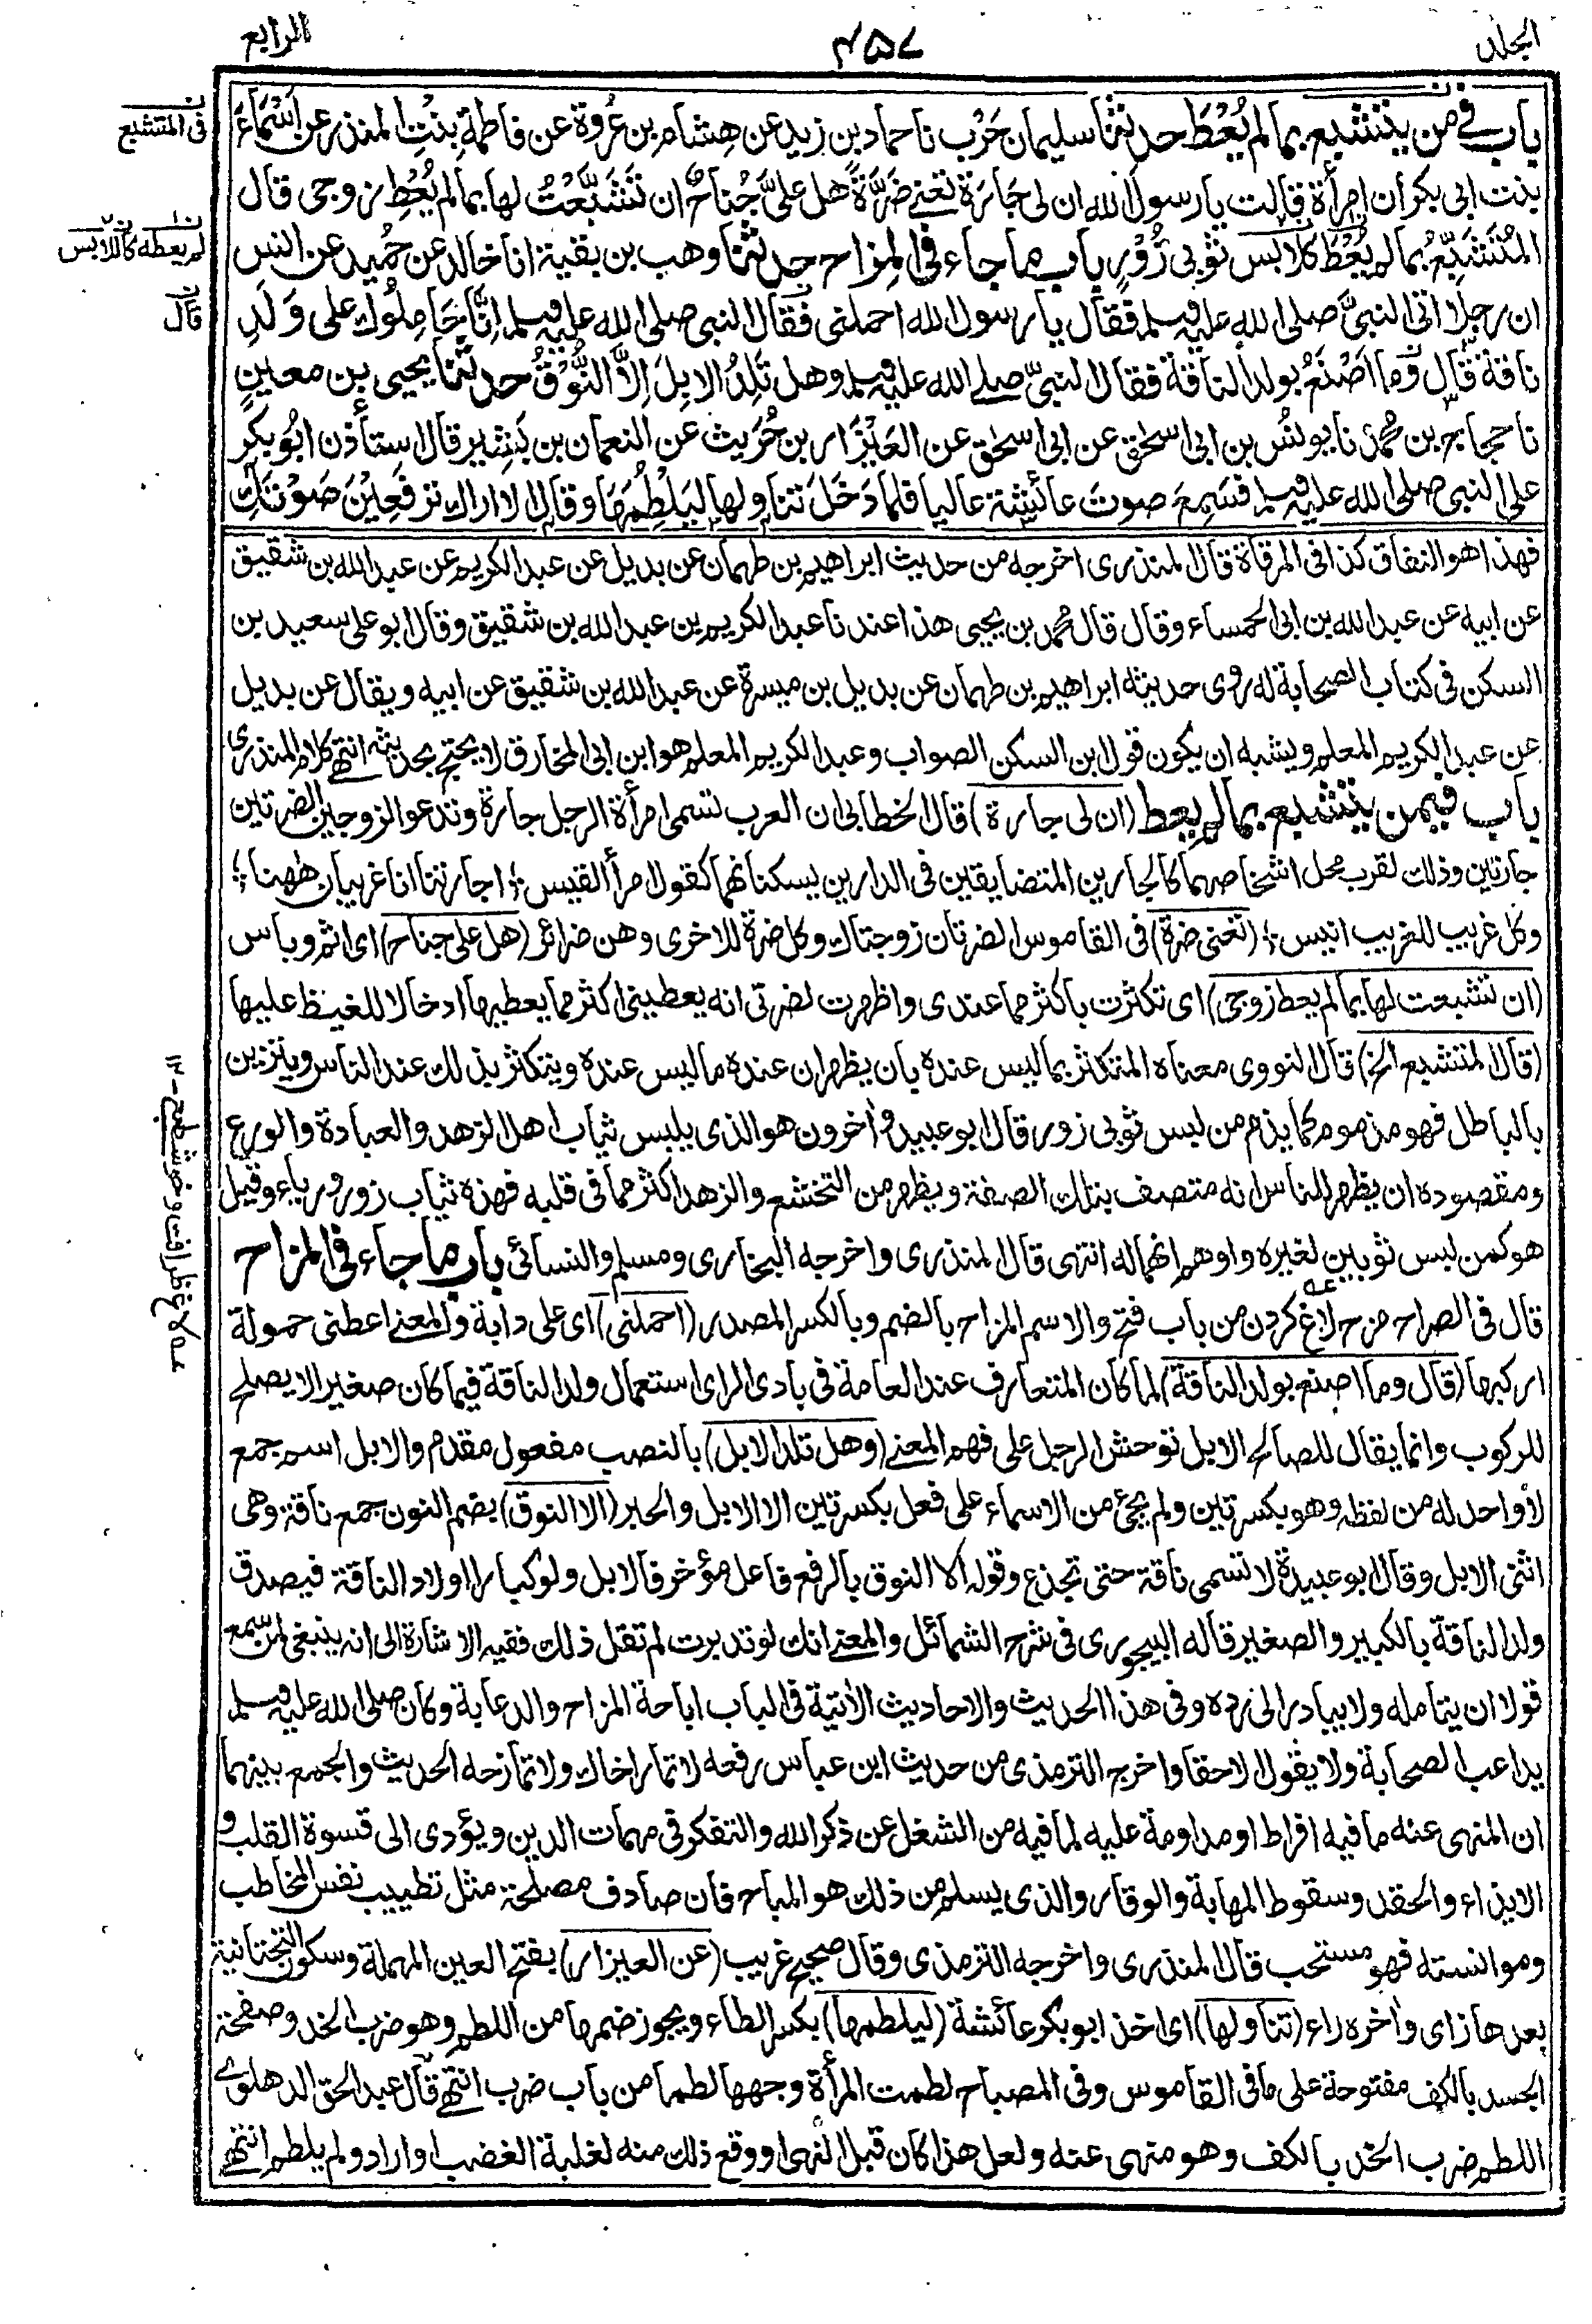 الجلد
۴۵۷
الرابع
باب في من يتشبع بما لم يُعْطَ حدثنا سليمان حَرْب نا حماد بن زيد عن هِشام بن عُرْوة عن فاطمةِ بِنْتِ المنذر عن اَسْمَاءَ
بنت ابى بكر ان امرأة قالت يا رسول الله ان لى جَارَة تَعْنِي ضَرَّةً هل علىَّ جُناحٌ ان تَشَبَّعْتُ لها بما لم يُعْطِ زوجى قال
المُتَشَبِّعُ بما لم يُعْطَ كلابس ثَوْبَى زُوْرٍ باب ما جاء فى المِزاح حدثنا وهب بن بقية انا خالد عن حُمِيد عن انس
ان رجلا اتى النبىَّ صلى الله عليه وسلم فقال يا رسول الله احملنى فقال النبى صلى الله عليه وسلم اِنَّا حَامِلُوك على وَلَدِ
ناقة قال وَما اَصْنَعُ بولد الناقة فقال النبىّ صلى الله عليه وسلم وهل تَلِدُ الابلَ اِلاَّ النُّوْقُ حدثنا يحيى بن معين
نا حجاج بن محمد نا يونُس بن ابى اسحٰق عن ابى اسحٰق عن العَيْزَار بن حُرَيث عن النعمان بن بَشِير قال استأذن ابُو بكرٍ
على النبى صلى الله عليه وسلم فسَمِعَ صوتَ عائشة عاليا فلما دَخَلَ تناولها لِيَلْطِمَهَا وقال لا اراكِ تَرفَعِيْنَ صَوْتَكِ
فهذا هو النفاق كذا فى المرقاة قال المنذرى اخرجه من حديث ابراهيم بن طهمان عن بديل عن عبد الكريم عن عبد الله بن شقيق
عن ابيه عن عبد الله بن ابى الحمساء وقال قال محمد بن يحيى هذا عندنا عبد الكريم بن عبد الله بن شقيق وقال ابو على سعيد بن
السكن فى كتاب الصحابة له روى حديثه ابراهيم بن طهمان عن بديل بن ميسرة عن عبد الله بن شقيق عن ابيه ويقال عن بديل
عن عبد الكريم المعلم ويشبه ان يكون قول ابن السكن الصواب وعبد الكريم المعلم هو ابن ابى المخارق لا يحتج بحديثه انتهى كلام المنذرى
باب فيمن يتشبع بما لم يعط (ان لى جارة) قال الخطابى ان العرب تسمى امرأة الرجل جارة وتدعو الزوجين الضرتين
جارتين وذلك لقرب محل اشخاصهما كالجارين المتضايقين فى الدارين يسكنانهما كقول امرأ القيس ؛ اجارتنا انا غريبان ههنا ؛
وكل غريب للغريب انيس ؛ (تعنى ضرة) فى القاموس الضرتان زوجتاك وكل ضرة للاخرى وهن ضرائر (هل على جناح) اى اثم وباس
(ان تشبعت لها بما لم يعط زوجى) اى تكثرت باكثر مما عندى واظهرت لضرتى انه يعطينى اكثر مما يعطيها ادخالا للغيظ عليها
(قال المتشبع الخ) قال النووى معناه المتكثر بما ليس عنده بان يظهر ان عنده ما ليس عنده ويتكثر بذلك عند الناس ويتزين
بالباطل فهو مذموم كما يذم من لبس ثوبى زور قال ابو عبيد وٰاخرون هو الذى يلبس ثياب اهل الزهد والعبادة والورع
ومقصوده ان يظهر للناس انه متصف بتلك الصفة ويظهر من التخشع والزهد اكثر مما فى قلبه فهذه ثياب زور ورياء وقيل
هو كمن لبس ثوبين لغيره واوهم انهما له انتهى قال المنذرى واخرجه البخارى ومسلم والنسائى باب ما جاء فى المزاح
قال فى الصراح مزح لاغ كردن من باب فتح والاسم المزاح بالضم وبالكسر المصدر (احملنى) اى على دابة والمعنى اعطنى حمولة
اركبها (قال وما اصنع بولد الناقة) لما كان المتعارف عند العامة فى بادى الراى استعمال ولد الناقة فيما كان صغيرا لا يصلح
للركوب وانما يقال للصالح الابل توحش الرجل على فهم المعنى (وهل تلد الابل) بالنصب مفعول مقدم والابل اسم جمع
لا واحد له من لفظه وهو بكسرتين ولم يجئ من الاسماء على فعل بكسرتين الا الابل والحبر (الا النوق) بضم النون جمع ناقة وهى
انثى الابل وقال ابو عبيدة لا تسمى ناقة حتى تجذع وقوله الا النوق بالرفع فاعل مؤخر فالابل ولو كبارا اولاد الناقة فيصدق
ولد الناقة بالكبير والصغير قاله البيجورى فى شرح الشمائل والمعنى انك لو تدبرت لم تقل ذلك ففيه الاشارة الى انه ينبغى لمن سمع
قولا ان يتامله ولا يبادر الى رده وفى هذا الحديث والاحاديث الاٰتية فى الباب اباحة المزاح والدعابة وكان صلى الله عليه وسلم
يداعب الصحابة ولا يقول الا حقا واخرج الترمذى من حديث ابن عباس رفعه لا تمار اخاك ولا تمازحه الحديث والجمع بينهما
ان المنهى عنه ما فيه افراط او مداومة عليه لما فيه من الشغل عن ذكر الله والتفكر فى مهمات الدين ويؤدى الى قسوة القلب و
الايذاء والحقد وسقوط المهابة والوقار والذى يسلم من ذلك هو المباح فان صادف مصلحة مثل تطييب نفس المخاطب
وموانسته فهو مستحب قال المنذرى واخرجه الترمذى وقال صحيح غريب (عن العيزار) بفتح العين المهملة وسكون التحتانية
بعدها زاى وٰاخره راء (تناولها) اى اخذ ابو بكر عائشة (ليلطمها) بكسر الطاء ويجوز ضمها من اللطم وهو ضرب الخد وصفحة
الجسد بالكف مفتوحة على ما فى القاموس وفى المصباح لطمت المرأة وجهها لطما من باب ضرب انتهى قال عبد الحق الدهلوى
اللطم ضرب الخد بالكف وهو منهى عنه ولعل هذا كان قبل النهى او وقع ذلك منه لغلبة الغضب او اراد ولم يلطم انتهى
فى المتشبع
لم يعطه كاللابس
قال
عـه لاغ ظرافت وخوش طبعى - ۱۲